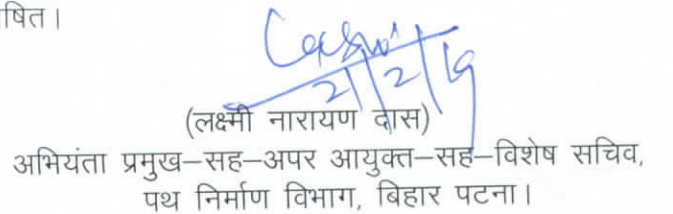 षित।
2/2/19
(लक्ष्मी नारायण दास)
अभियंता प्रमुख–सह–अपर आयुक्त–सह–विशेष सचिव,
पथ निर्माण विभाग, बिहार पटना।